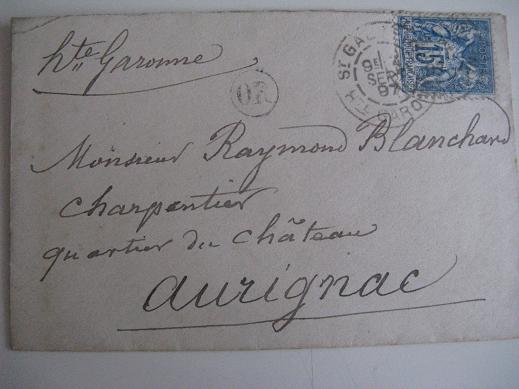 hte Garonne
OR
St GAU
9E 4
SEPT
97
Hte GARONNE
15
Monsieur Raymond Blanchard
charpentier
quartier du château
aurignac